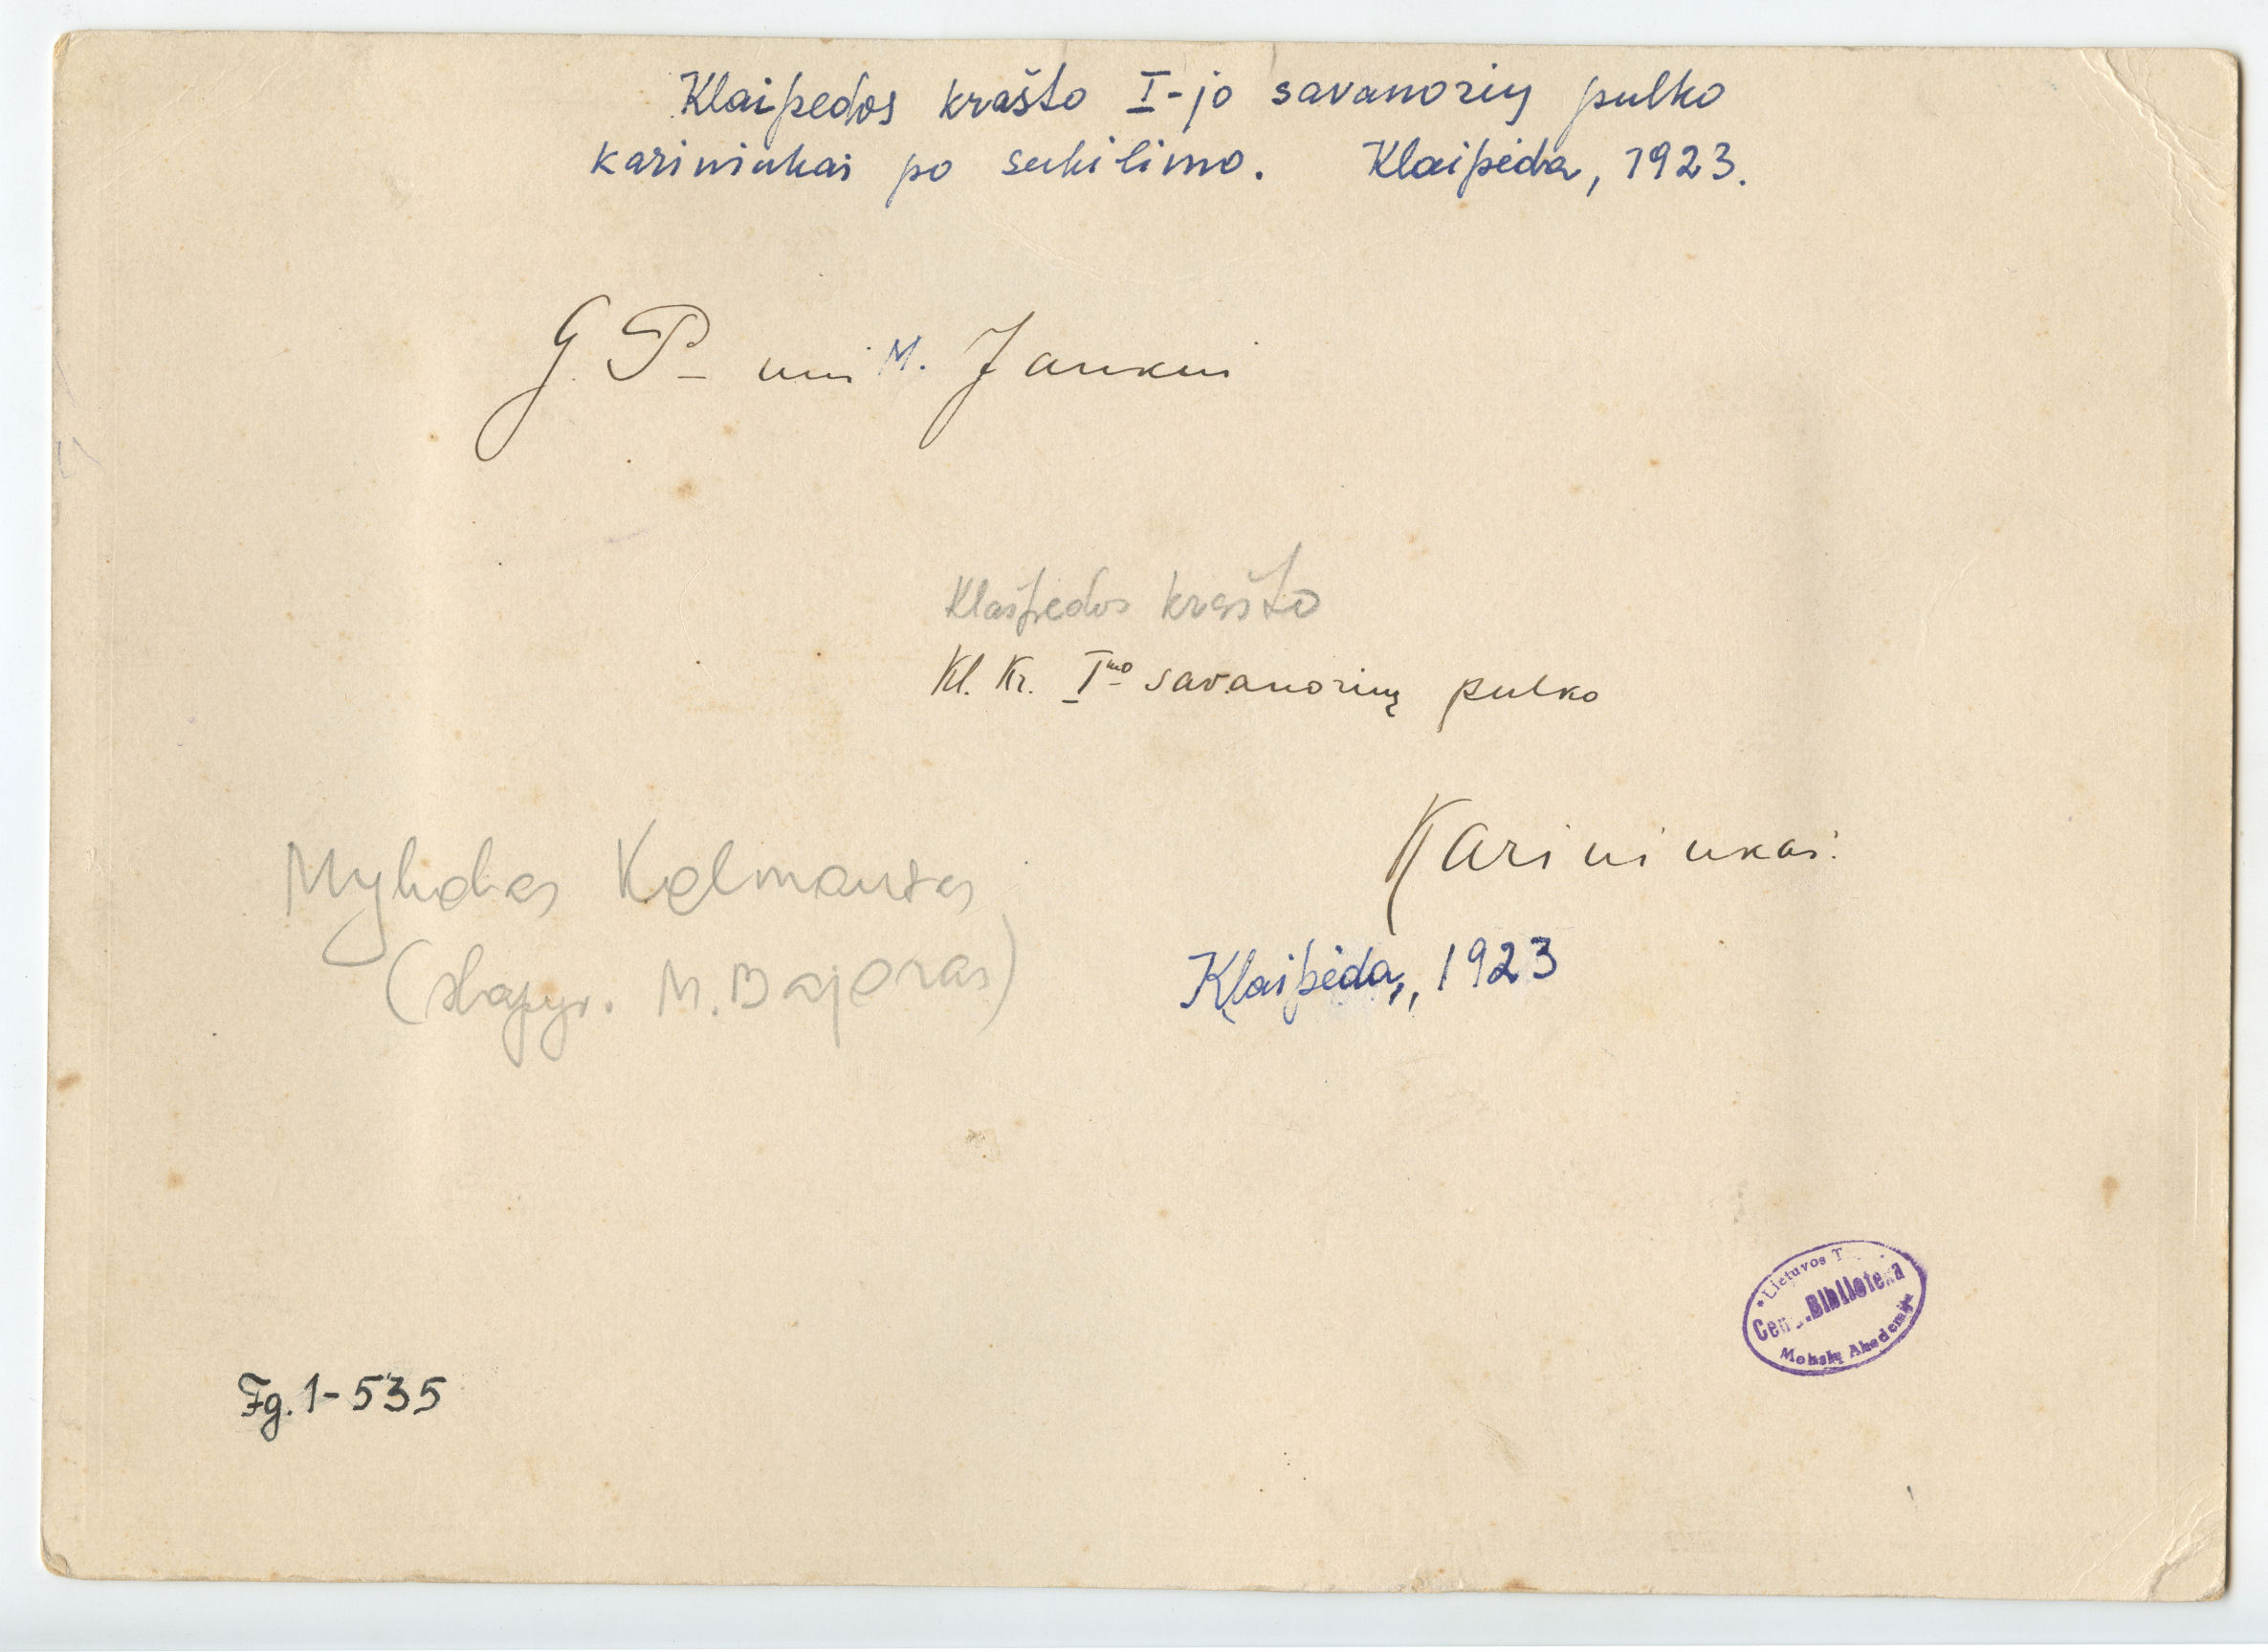 Klaipėdos krašto I-jo savanorių pulko
karininkai po sukilimo. Klaipėda, 1923.
G. P-nui M. Jankui
Klaipėdos krašto
Kl. Kr. I-mo savanorių pulko
Karininkai:
Mykolas Kalmantas
(slapyv. M. Bajoras)
Klaipėda, 1923
Lietuvos
Biblioteka
Mokslų Akademija
Fg. 1-535